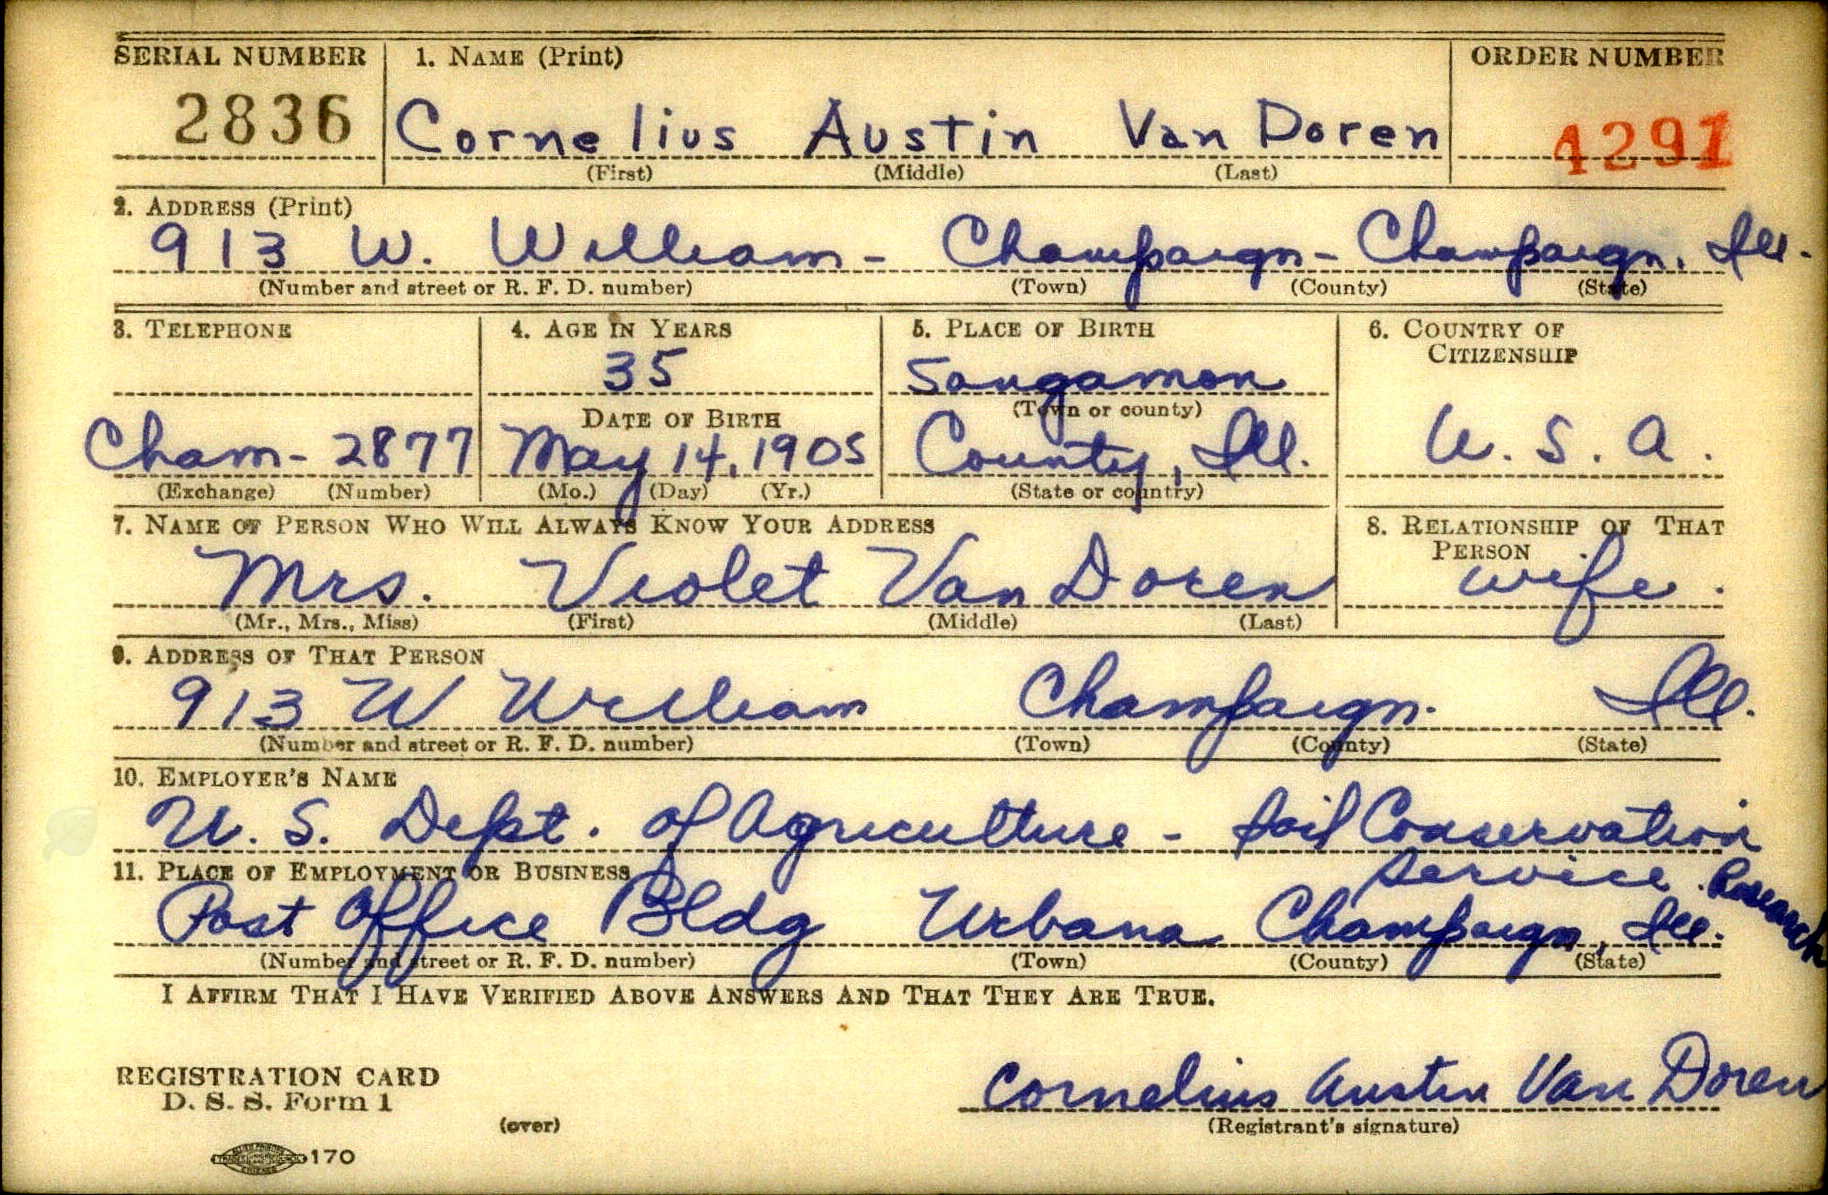 SERIAL NUMBER 1. NAME (Print) ORDER NUMBER
2836 Cornelius Austin Van Doren 4291
(First) (Middle) (Last)
2. ADDRESS (Print)
913 W. William - Champaign - Champaign, Ill.
(Number and street or R. F. D. number) (Town) (County) (State)
3. TELEPHONE 4. AGE IN YEARS 5. PLACE OF BIRTH 6. COUNTRY OF
CITIZENSHIP
35 Sangamon
(Town or county)
DATE OF BIRTH
Cham - 2877 May 14, 1905 County, Ill. U. S. A.
(Exchange) (Number) (Mo.) (Day) (Yr.) (State or country)
7. NAME OF PERSON WHO WILL ALWAYS KNOW YOUR ADDRESS 8. RELATIONSHIP OF THAT
PERSON
Mrs. Violet Van Doren wife.
(Mr., Mrs., Miss) (First) (Middle) (Last)
9. ADDRESS OF THAT PERSON
913 W William Champaign. Ill.
(Number and street or R. F. D. number) (Town) (County) (State)
10. EMPLOYER'S NAME
U. S. Dept. of Agriculture - Soil Conservation
Service. Research
11. PLACE OF EMPLOYMENT OR BUSINESS
Post Office Bldg Urbana Champaign, Ill.
(Number and street or R. F. D. number) (Town) (County) (State)
I AFFIRM THAT I HAVE VERIFIED ABOVE ANSWERS AND THAT THEY ARE TRUE.
REGISTRATION CARD
D. S. S. Form 1
Cornelius Austin Van Doren
(over) (Registrant's signature)
170